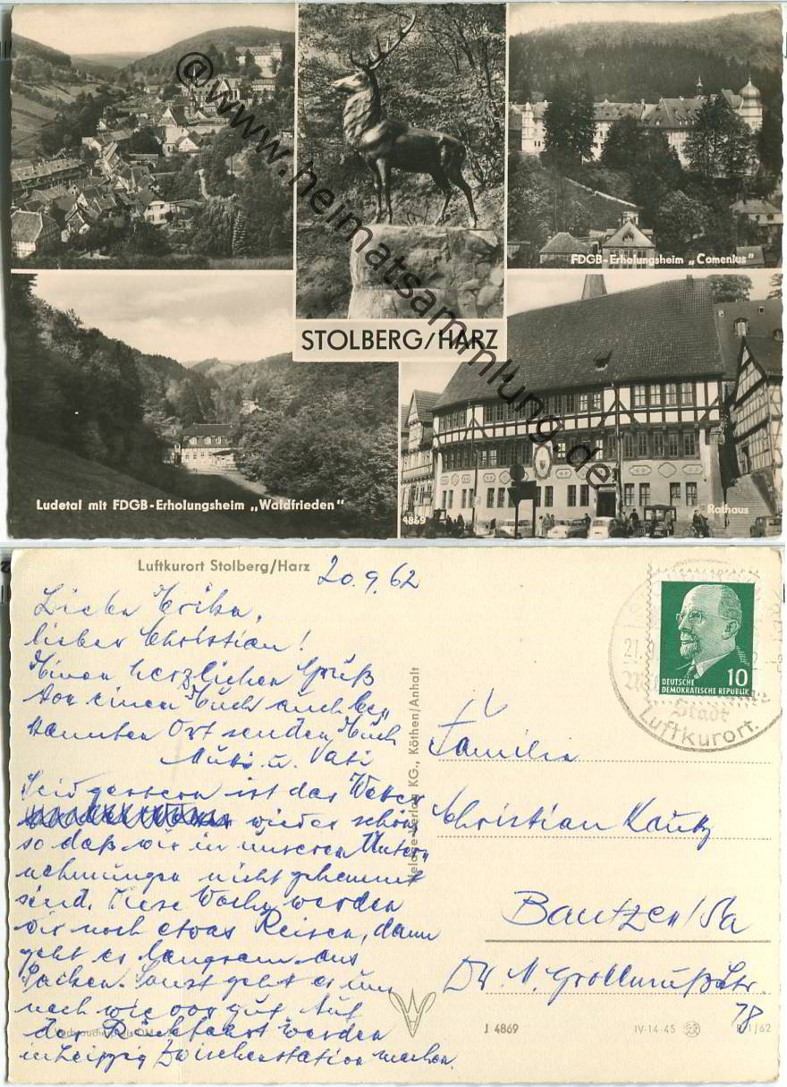 @www.heimatsammlung.de
FDGB-Erholungsheim „Comenius"
STOLBERG/HARZ
Ludetal mit FDGB-Erholungsheim „Waldfrieden"
4869
Rathaus
Luftkurort Stolberg/Harz
20.9.62
Liebe Erika,
lieber Christian!
Einen herzlichen Gruß
von einem Euch auch be-
kannten Ort senden Euch
Mutti u. Vati
Seid gestern ist das Wetter
wieder schön
so daß wir in unseren Unter-
nehmungen nicht gehemmt
sind. Diese Woche werden
wir noch etwas Reisen, dann
geht es langsam ans
Packen. Sonst geht es uns
nach wie vor gut. Auf
der Rückfahrt werden
in Leipzig Zwischenstation machen.
Verlag KG., Köthen/Anhalt
21.9
Stadt
Luftkurort
10
DEUTSCHE
DEMOKRATISCHE REPUBLIK
Familie
Christian Kautz
Bautzen/Sa
Dr. N. Str.
78
J 4869
IV-14-45
1/62